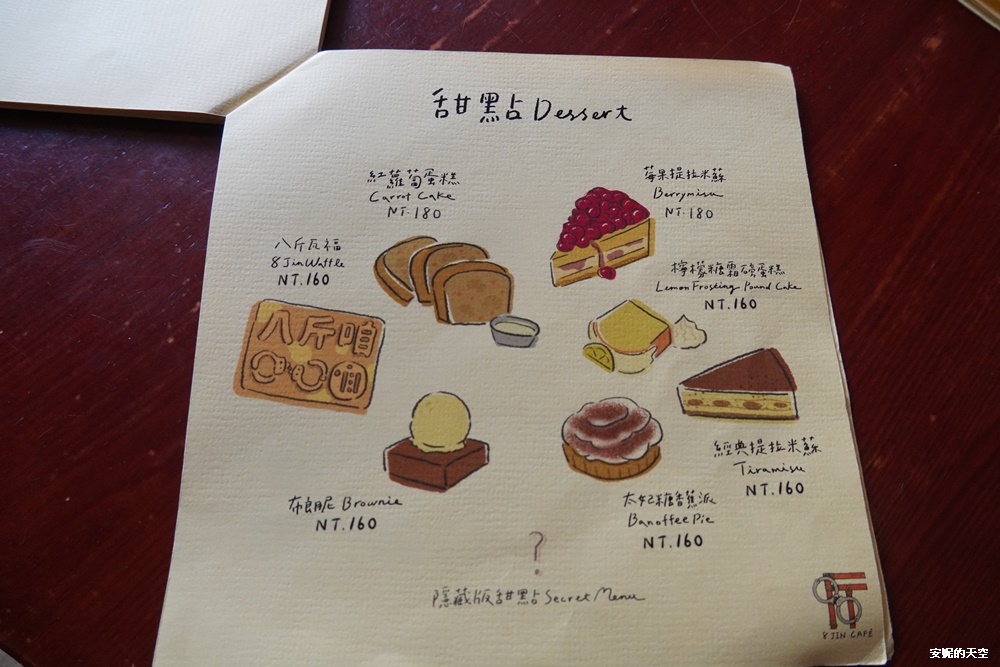 甜點 Dessert
紅蘿蔔蛋糕
Carrot Cake
NT.180
莓果提拉米蘇
Berrymisu
NT.180
八斤瓦福
8 Jin Waffle
NT.160
檸檬糖霜磅蛋糕
Lemon Frosting Pound Cake
NT.160
八斤咱
經典提拉米蘇
Tiramisu
NT.160
布朗尼 Brownie
NT.160
太妃糖香蕉派
Banoffee Pie
NT.160
?
隱藏版甜點 Secret Menu
8 JIN CAFÉ
安妮的天空